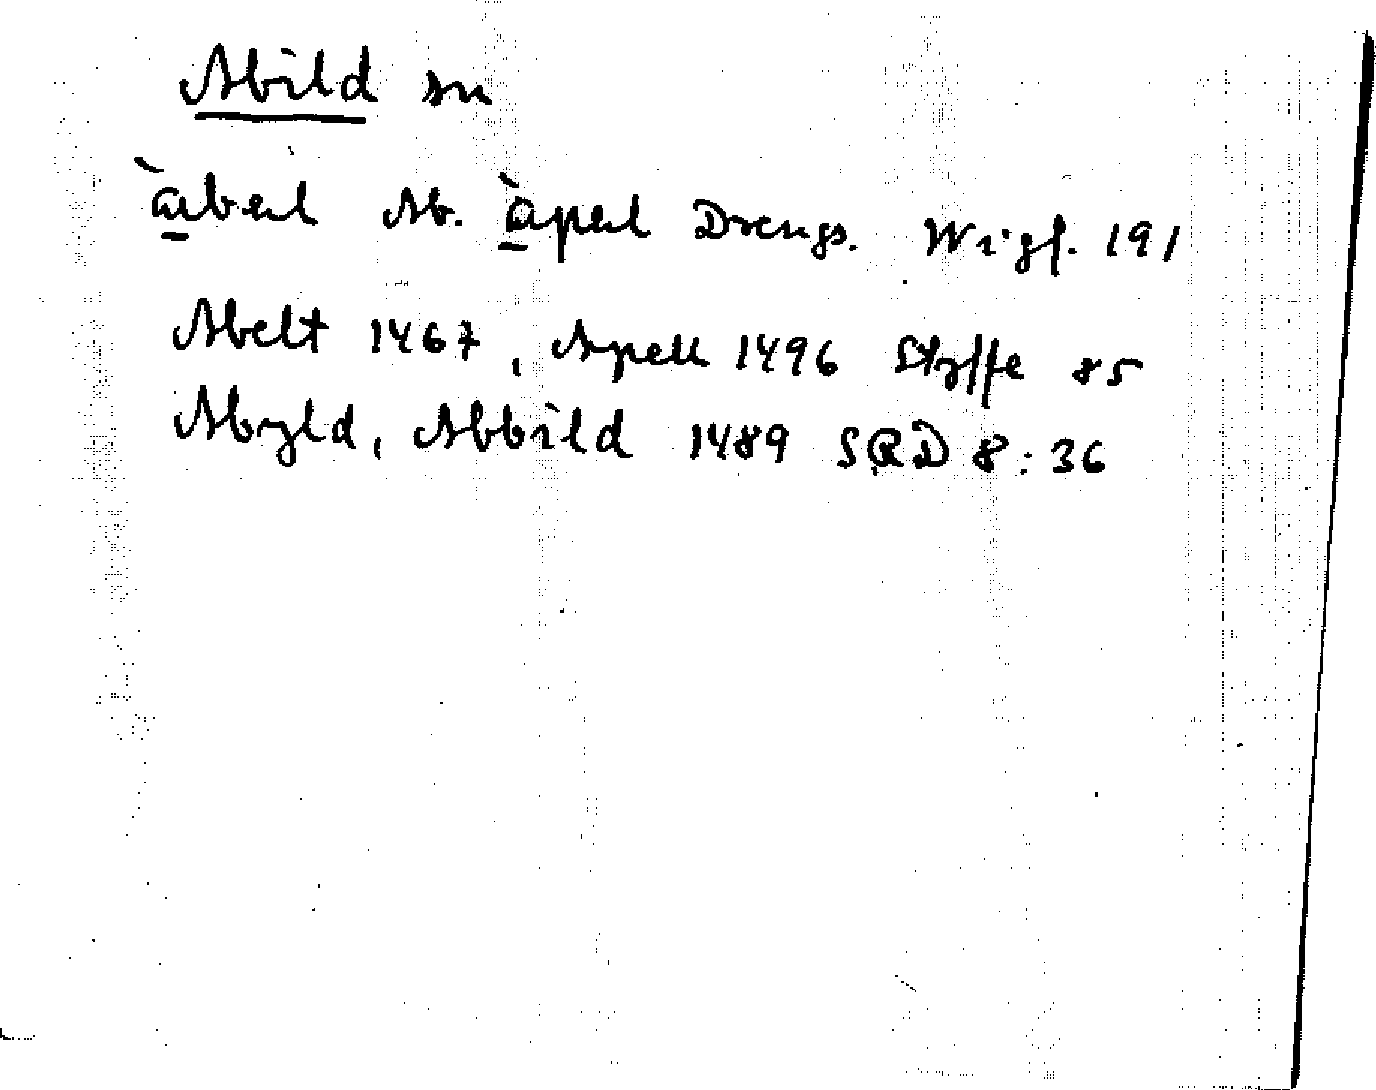 Abild sn
àbel Ab. àpel Drengs. Wigf. 191
Abelt 1467, Apell 1496 Styffe 85
Abyld, Abbild 1489 SRD 8:36